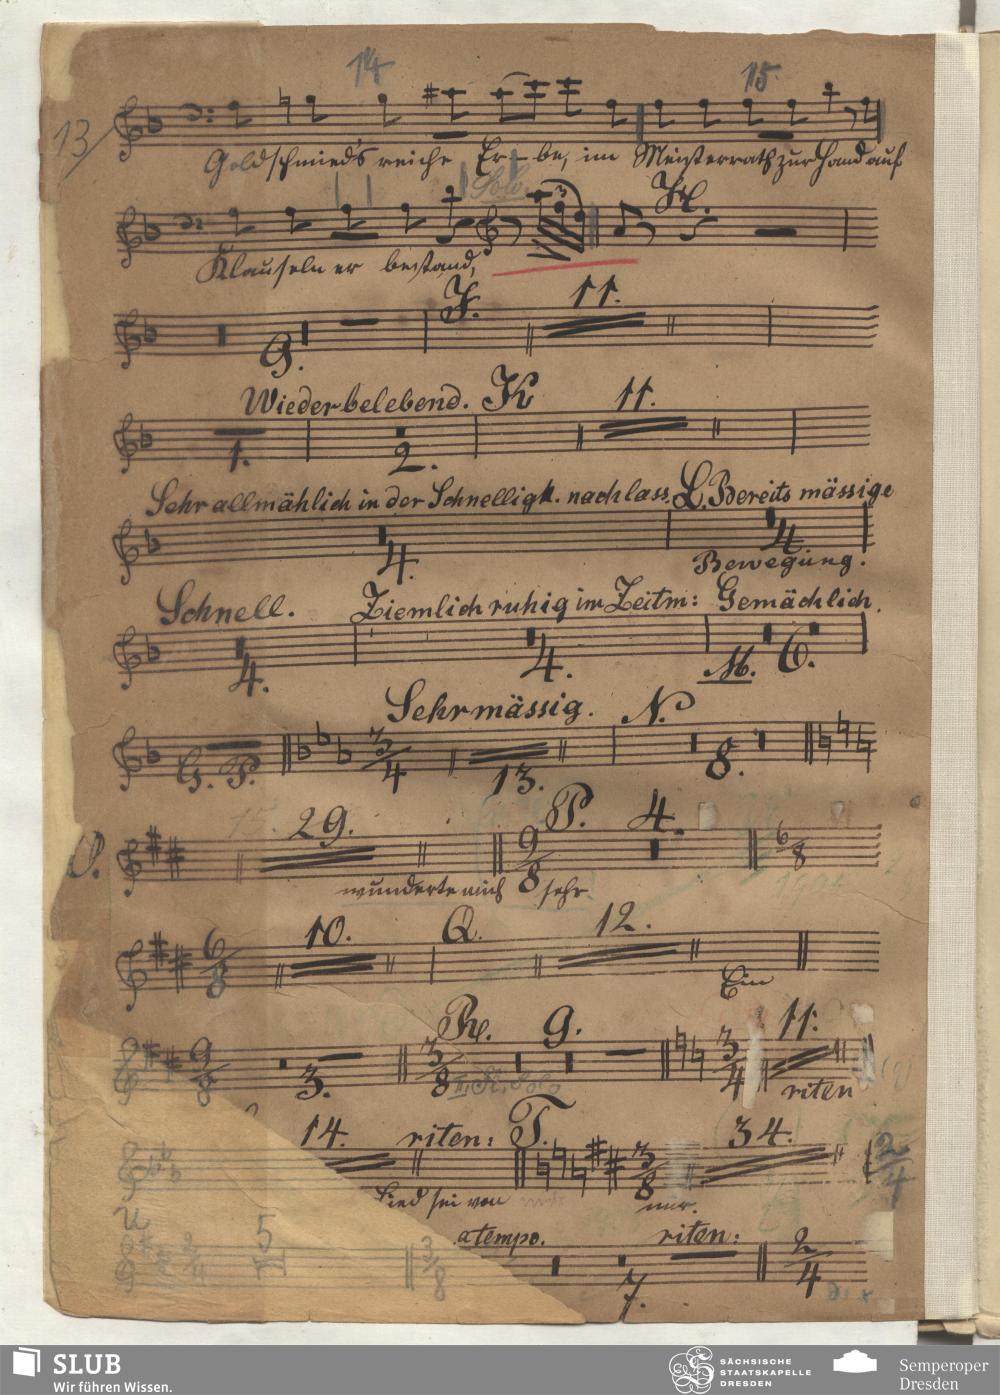 14 15
13
Goldschmied's reiche Er - be, im Meisterrath zur Hand auf
Solo
3
H.
Klauseln er bestand,
J. 11.
9.
Wiederbelebend. K 11.
1. 2.
Sehr allmählich in der Schnelligk. nachlass. L. Bereits mässige
4. 4
Bewegung.
Schnell. Ziemlich ruhig im Zeitm: Gemächlich.
4. 4. M. 6.
Sehr mässig. N.
G. P. 3/4 13. 8.
O. 29. 9/8 P. 4. 6/8
wunderte mich sehr
6/8 10. Q. 12.
Ein
9/8 3. R. 3/8 9. 3/4 11.
Solo riten
14. riten: T. 3/8 34. 2/4
Lied sei von nur.
U 5 3/8 a tempo. riten: 2/4
2/4 7.
SLUB
Wir führen Wissen.
SÄCHSISCHE
STAATSKAPELLE
DRESDEN
Semperoper
Dresden